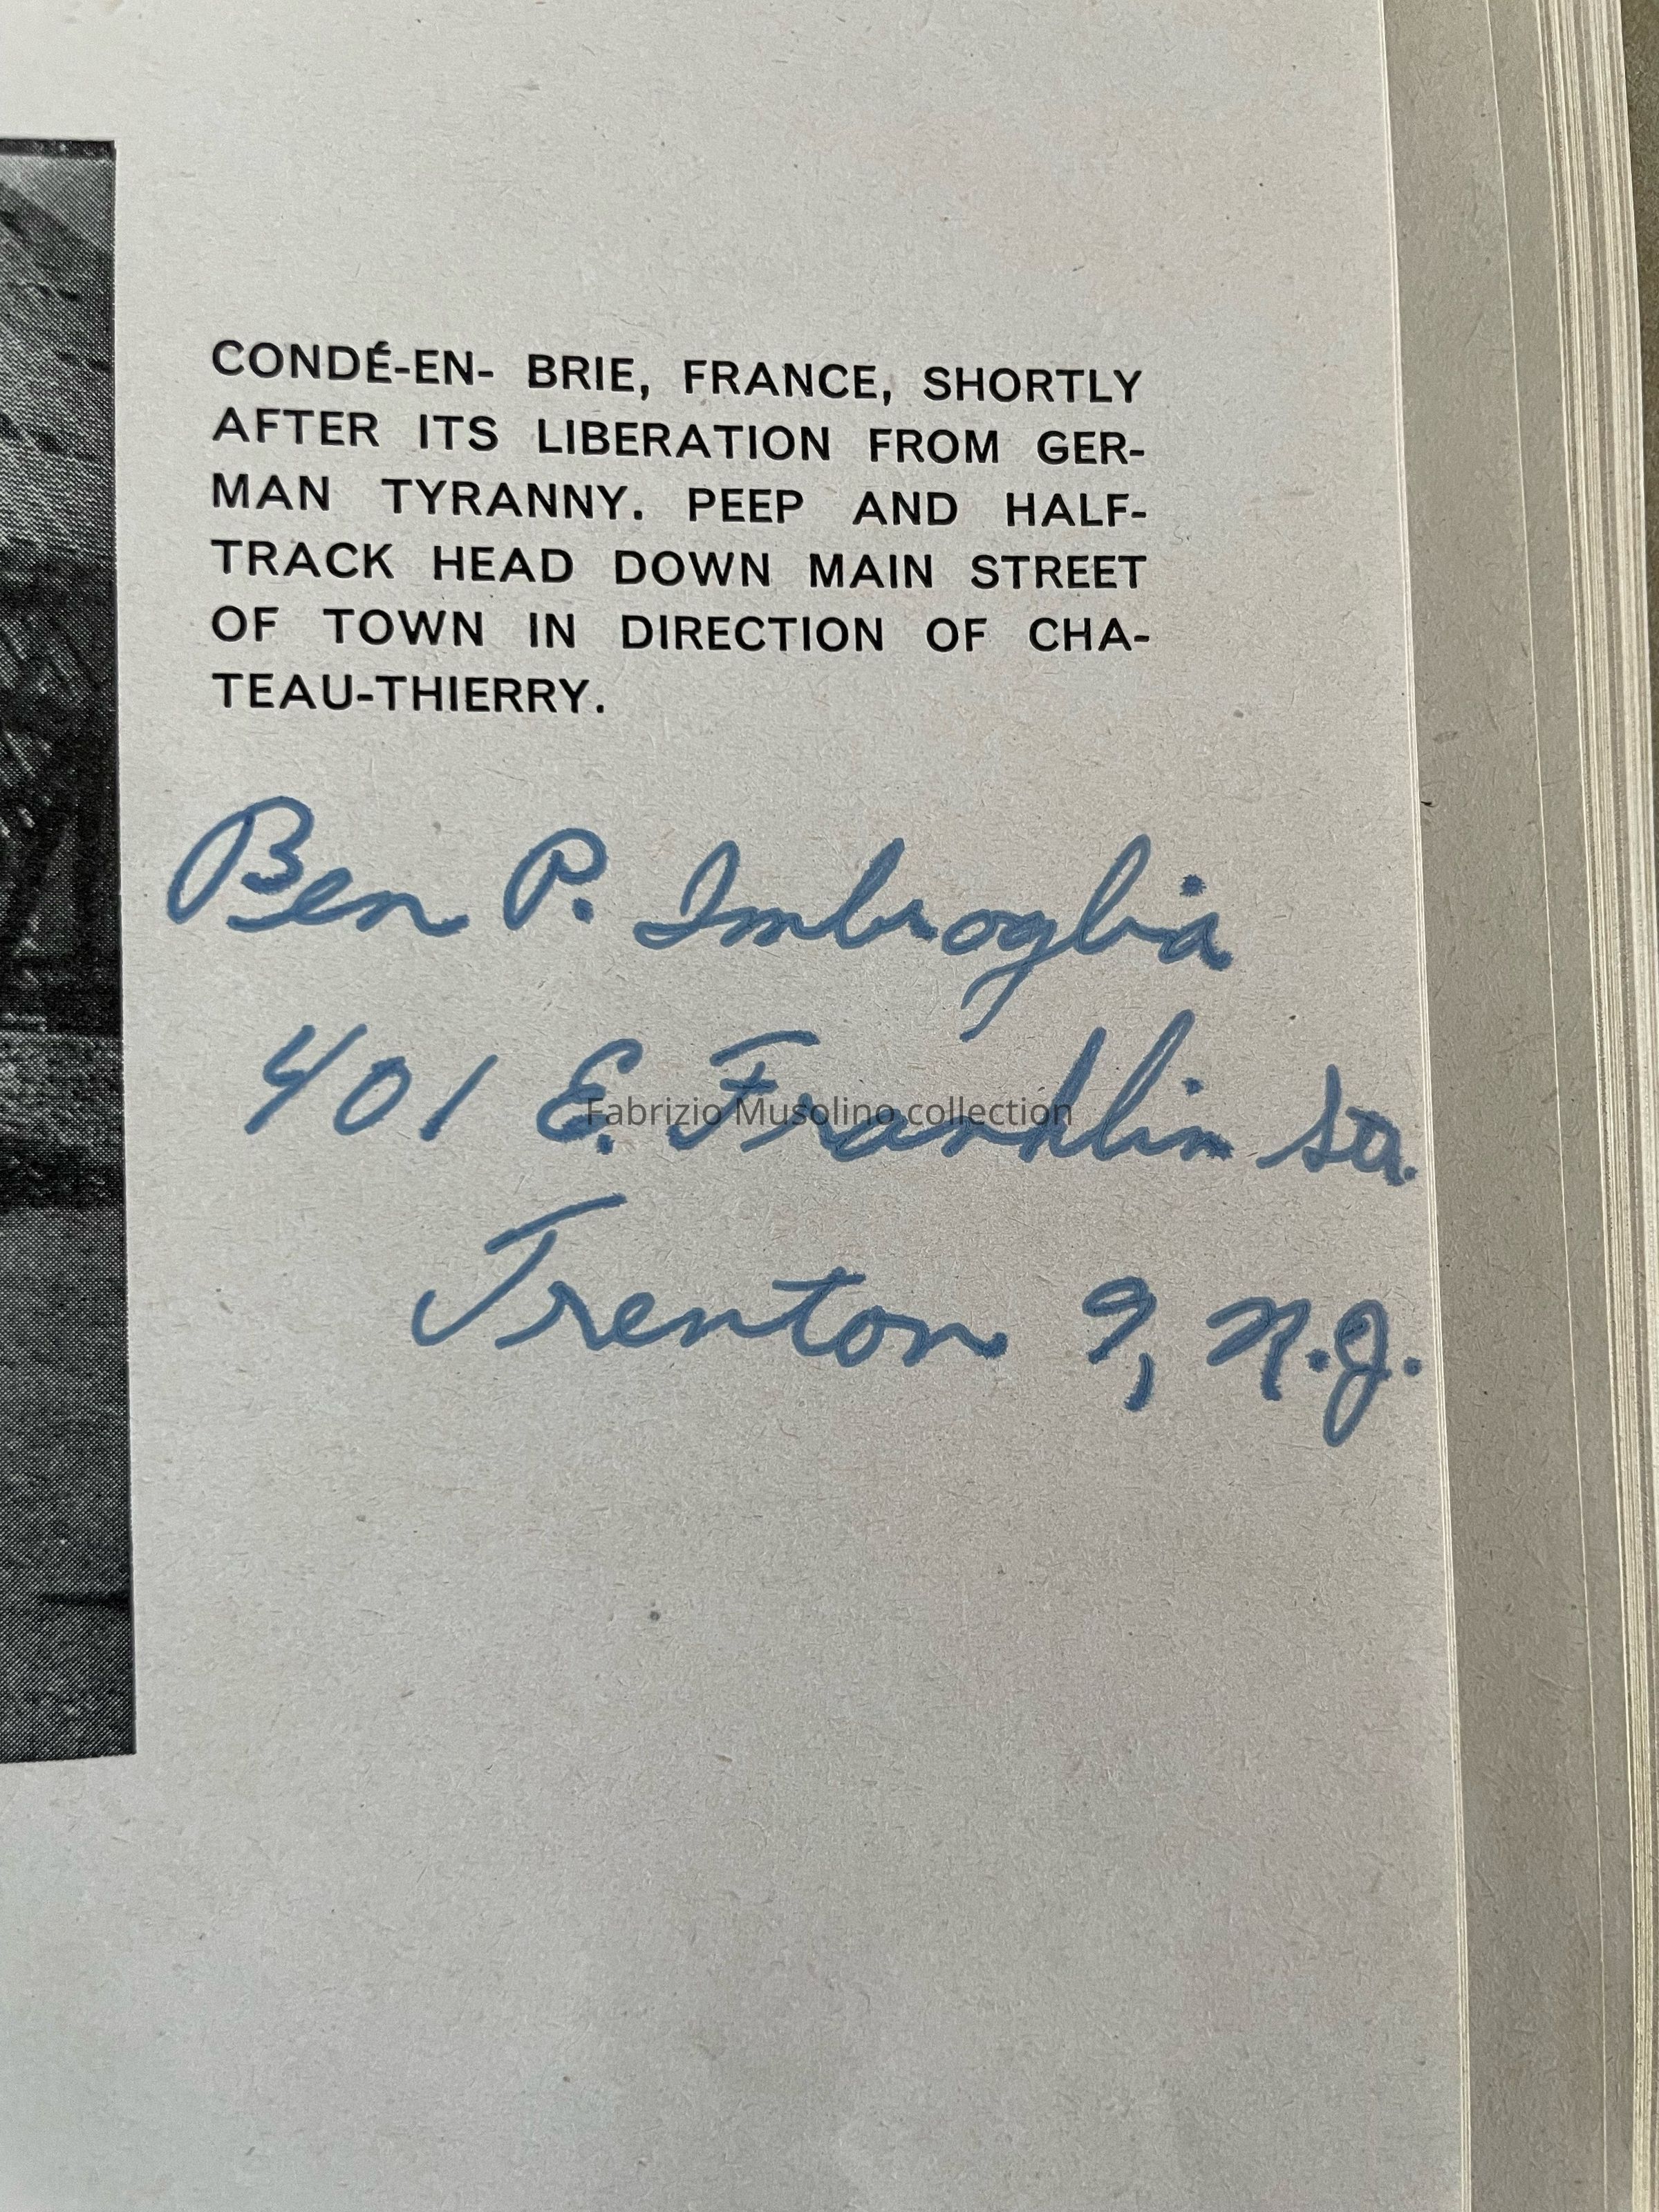 CONDÉ-EN- BRIE, FRANCE, SHORTLY
AFTER ITS LIBERATION FROM GER-
MAN TYRANNY. PEEP AND HALF-
TRACK HEAD DOWN MAIN STREET
OF TOWN IN DIRECTION OF CHA-
TEAU-THIERRY.
Ben P. Imbroglia
401 E. Franklin St.
Fabrizio Musolino collection
Trenton 9, N.J.